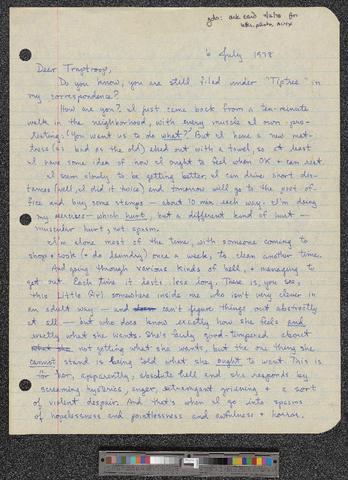 6 July 1978
Dear Traptroop,
Do you know, you are still filed under "Tiptree" in
my correspondence?
How are you? I just came back from a ten-minute
walk in the neighborhood, with every muscle I own pro-
testing. (You want us to do what?) But I have a new mat-
tress (as bad as the old) eked out with a towel, so at least
I have some idea of how I ought to feel when OK + can rest.
I seem slowly to be getting better. I can drive short dis-
tances (well, I did it twice) and tomorrow will go to the post of-
fice and buy some stamps — about 10 min each way. I'm doing
my exercises — which hurt, but a different kind of hurt —
muscular hurt, not spasm.
I'm alone most of the time, with someone coming to
shop + cook (+ do laundry) once a week, to clean another time.
And going through various kinds of hell, + managing to
get out. Each time it lasts less long. There is, you see,
this Little (Jr) somewhere inside me who isn't very clever in
an adult way — and can't figure things out abstractly
at all — but who does know exactly how she feels and
exactly what she wants. She's fairly good-tempered about
not getting what she wants, but the one thing she
cannot stand is being told what she ought to want. This is
for her, apparently, absolute hell and she responds by
screaming hysterics, anger, extravagant grieving + a sort
of violent despair. And that's when I go into spasms
of hopelessness and pointlessness and awfulness + horror.